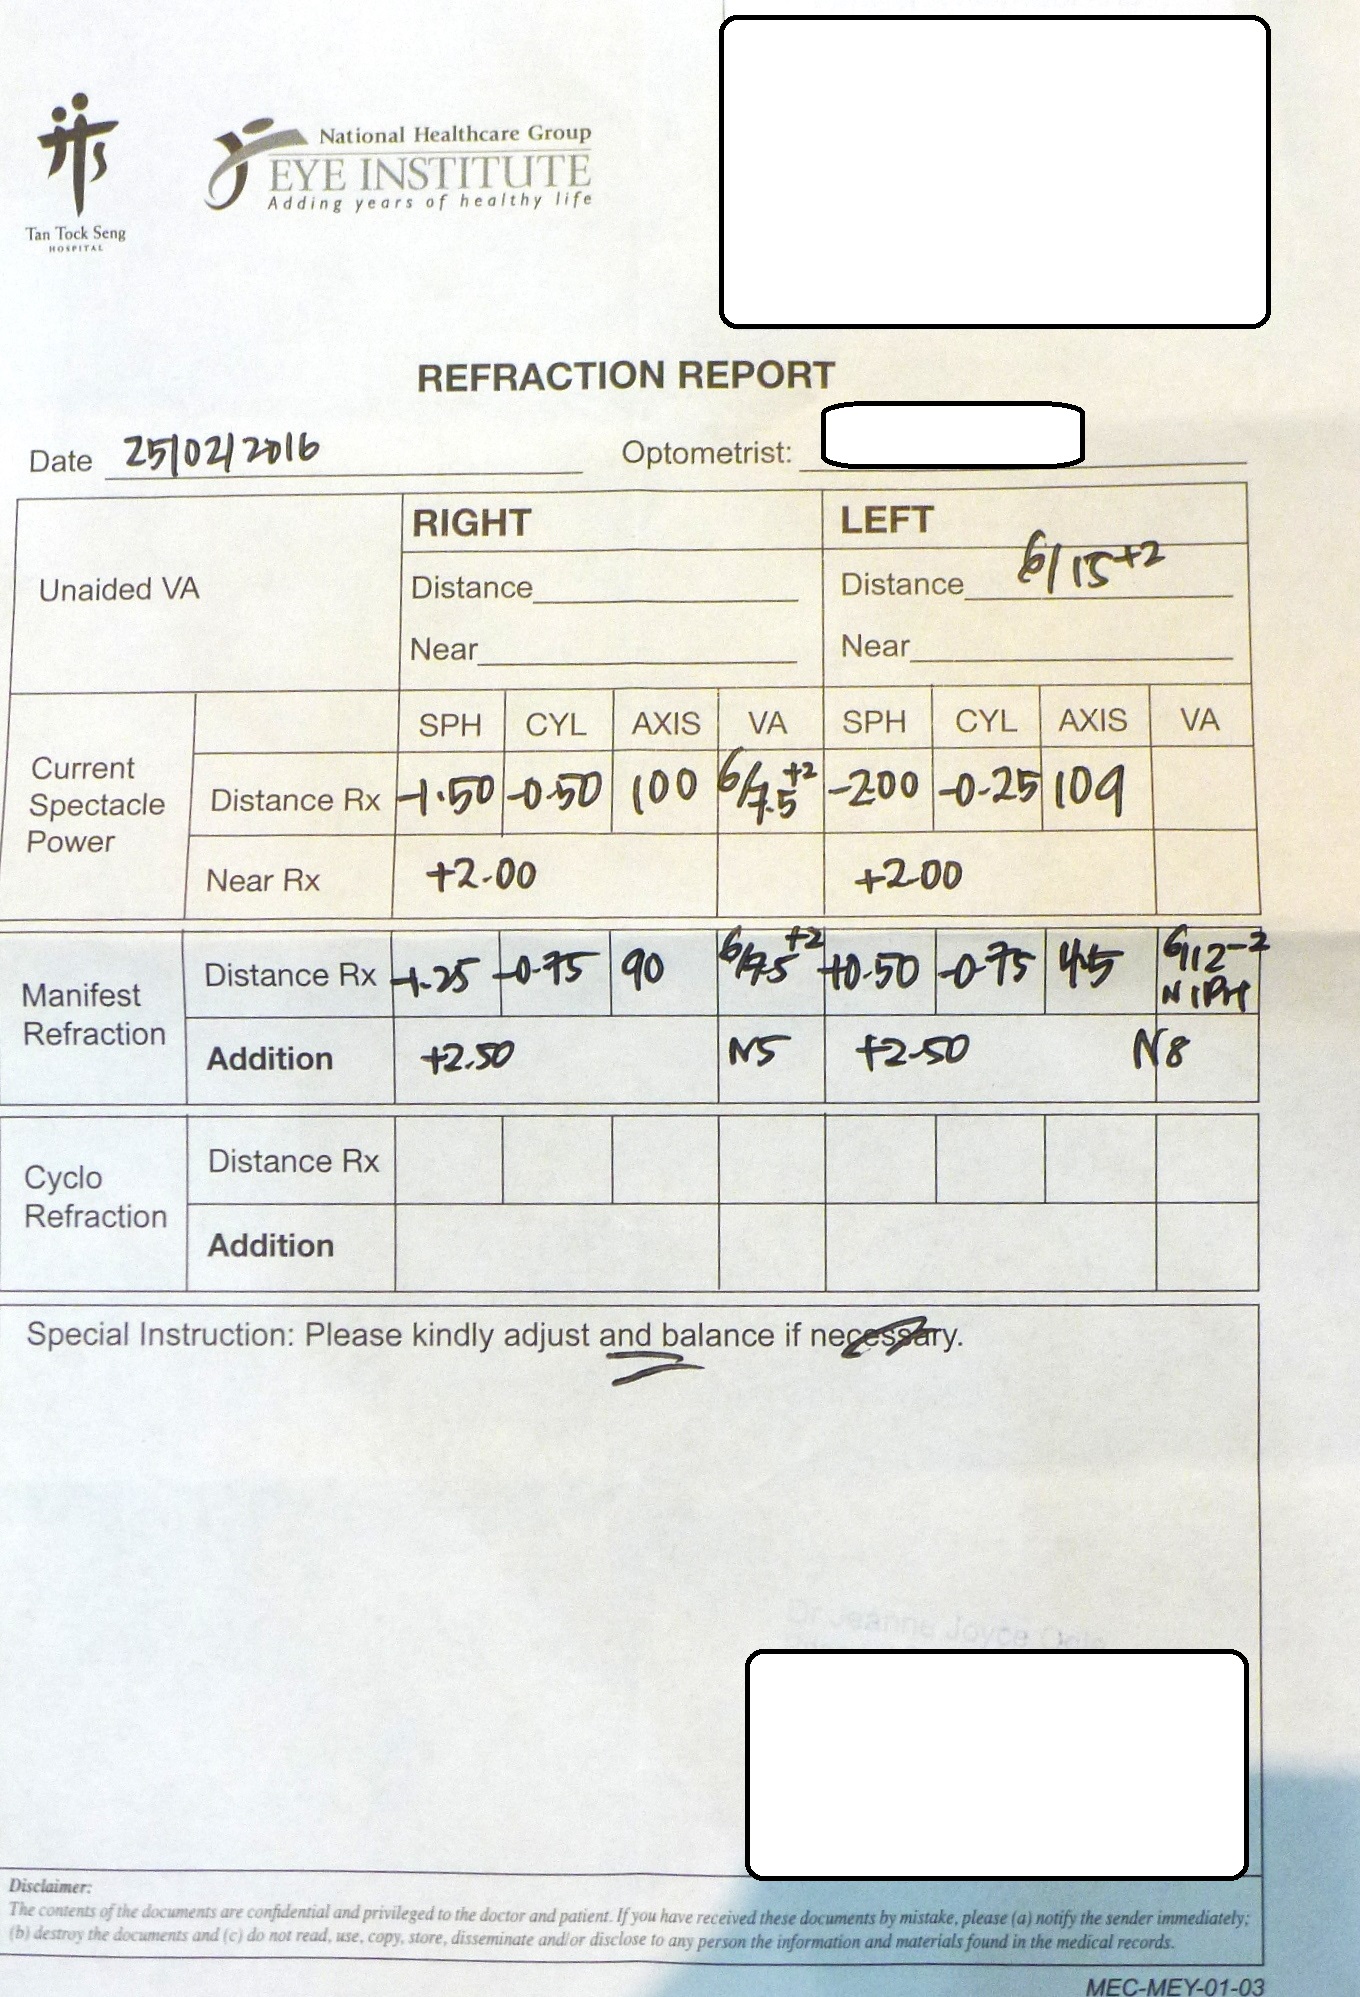 Tan Tock Seng
HOSPITAL
National Healthcare Group
EYE INSTITUTE
Adding years of healthy life
REFRACTION REPORT
Date 25/02/2016 Optometrist:
RIGHT LEFT
Unaided VA Distance Distance 6/15+2
Near Near
SPH CYL AXIS VA SPH CYL AXIS VA
Current Spectacle Power
Distance Rx -1.50 -0.50 100 6/7.5+2 -200 -0.25 109
Near Rx +2.00 +2.00
Manifest Refraction
Distance Rx -1.25 -0.75 90 6/7.5+2 +0.50 -0.75 45 6/12-2
NIPH
Addition +2.50 N5 +2.50 N8
Cyclo Refraction
Distance Rx
Addition
Special Instruction: Please kindly adjust and balance if necessary.
Dr Jeanne Joyce
Disclaimer:
The contents of the documents are confidential and privileged to the doctor and patient. If you have received these documents by mistake, please (a) notify the sender immediately;
(b) destroy the documents and (c) do not read, use, copy, store, disseminate and/or disclose to any person the information and materials found in the medical records.
MEC-MEY-01-03